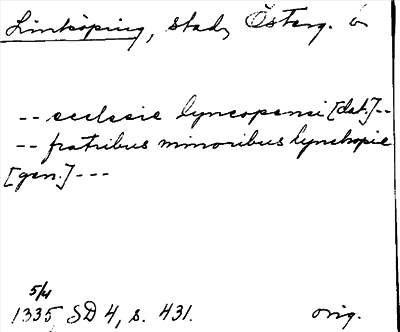 Linköping, stad, Österg. l.
-- ecclesie lyncopensi [dat.] --
-- fratribus minoribus lynchopie
[gen.] ---
5/4
1335, SD 4, s. 431. orig.